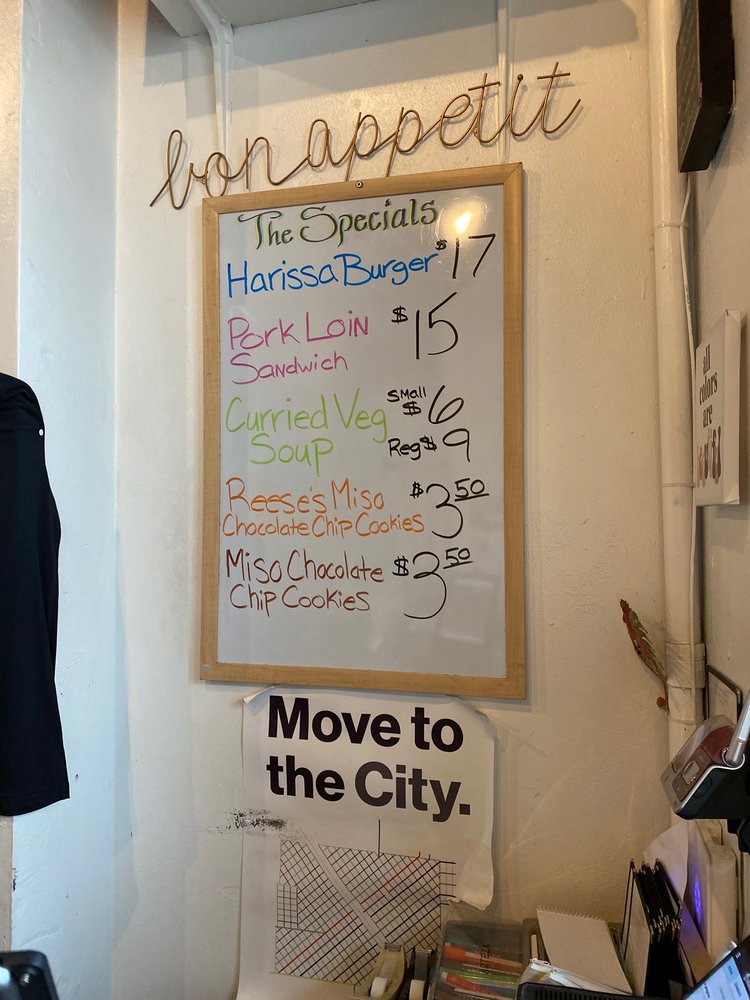 bon appetit
The Specials
Harissa Burger $17
Pork Loin $15
Sandwich
Curried Veg Small $6
Soup Reg $9
Reese's Miso $3 50
Chocolate Chip Cookies
Miso Chocolate $3 50
Chip Cookies
all
colors
are
Move to
the City.